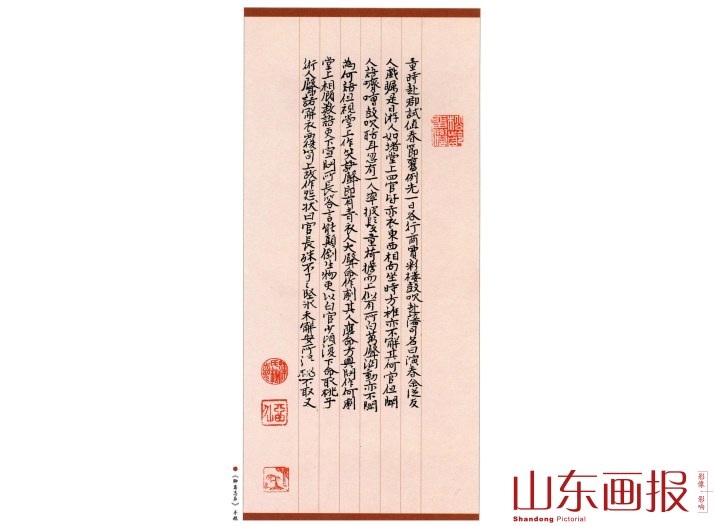 童時赴郡試值春節舊例先一日各行商賈彩樓鼓吹赴藩司名曰演春余從友
人戲矚是日游人如堵堂上四官皆赤衣東西相向坐時方稚亦不解其何官但聞
人語嚌嘈鼓吹聒耳忽有一人率披髮童荷擔而上似有所白萬聲洶動亦不聞
為何語但視堂上作笑聲即有青衣人大聲命作劇其人應命方興問作何劇
堂上相顧數語吏下宣問所長答言能顛倒生物吏以白官少頃復下命取桃子
術人聲諾解衣覆笥上故作怨狀曰官長殊不了了堅冰未解安所得桃不取又
《聊齋志異》手稿
山东画报
Shandong Pictorial
影像
影响